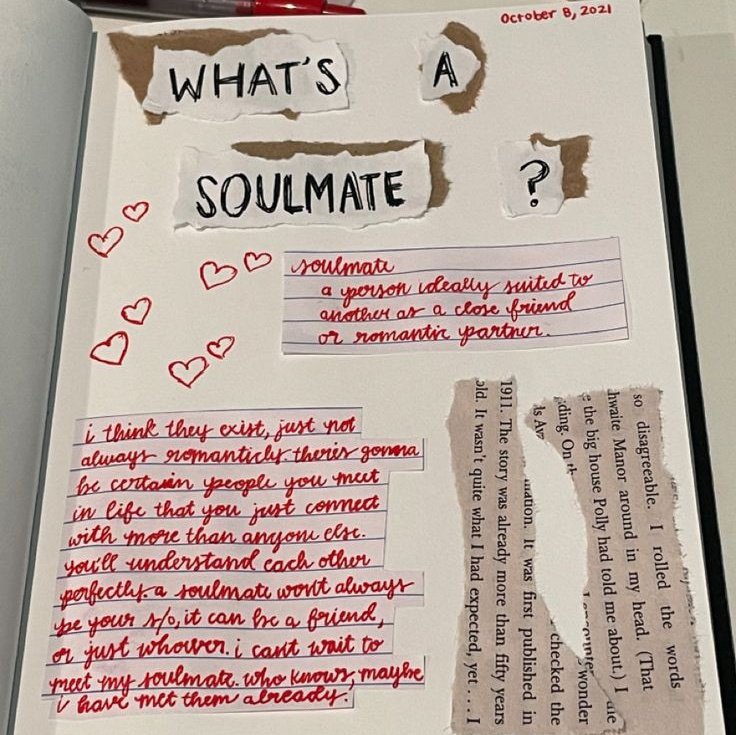 October 8, 2021
WHAT'S A
SOULMATE ?
soulmate
a person ideally suited to
another as a close friend
or romantic partner.
i think they exist, just not
always romanticly. there's gonna
be certain people you meet
in life that you just connect
with more than anyone else.
you'll understand each other
perfectly. a soulmate won't always
be your s/o, it can be a friend,
or just whoever. i can't wait to
meet my soulmate. who knows, maybe
i have met them already.
so disagreeable. I rolled the words
hwaite Manor around in my head. (That
e the big house Polly had told me about.) I
ding. On
wonder
checked the
mation. It was first published in
1911. The story was already more than fifty years
old. It wasn't quite what I had expected, yet . . . I